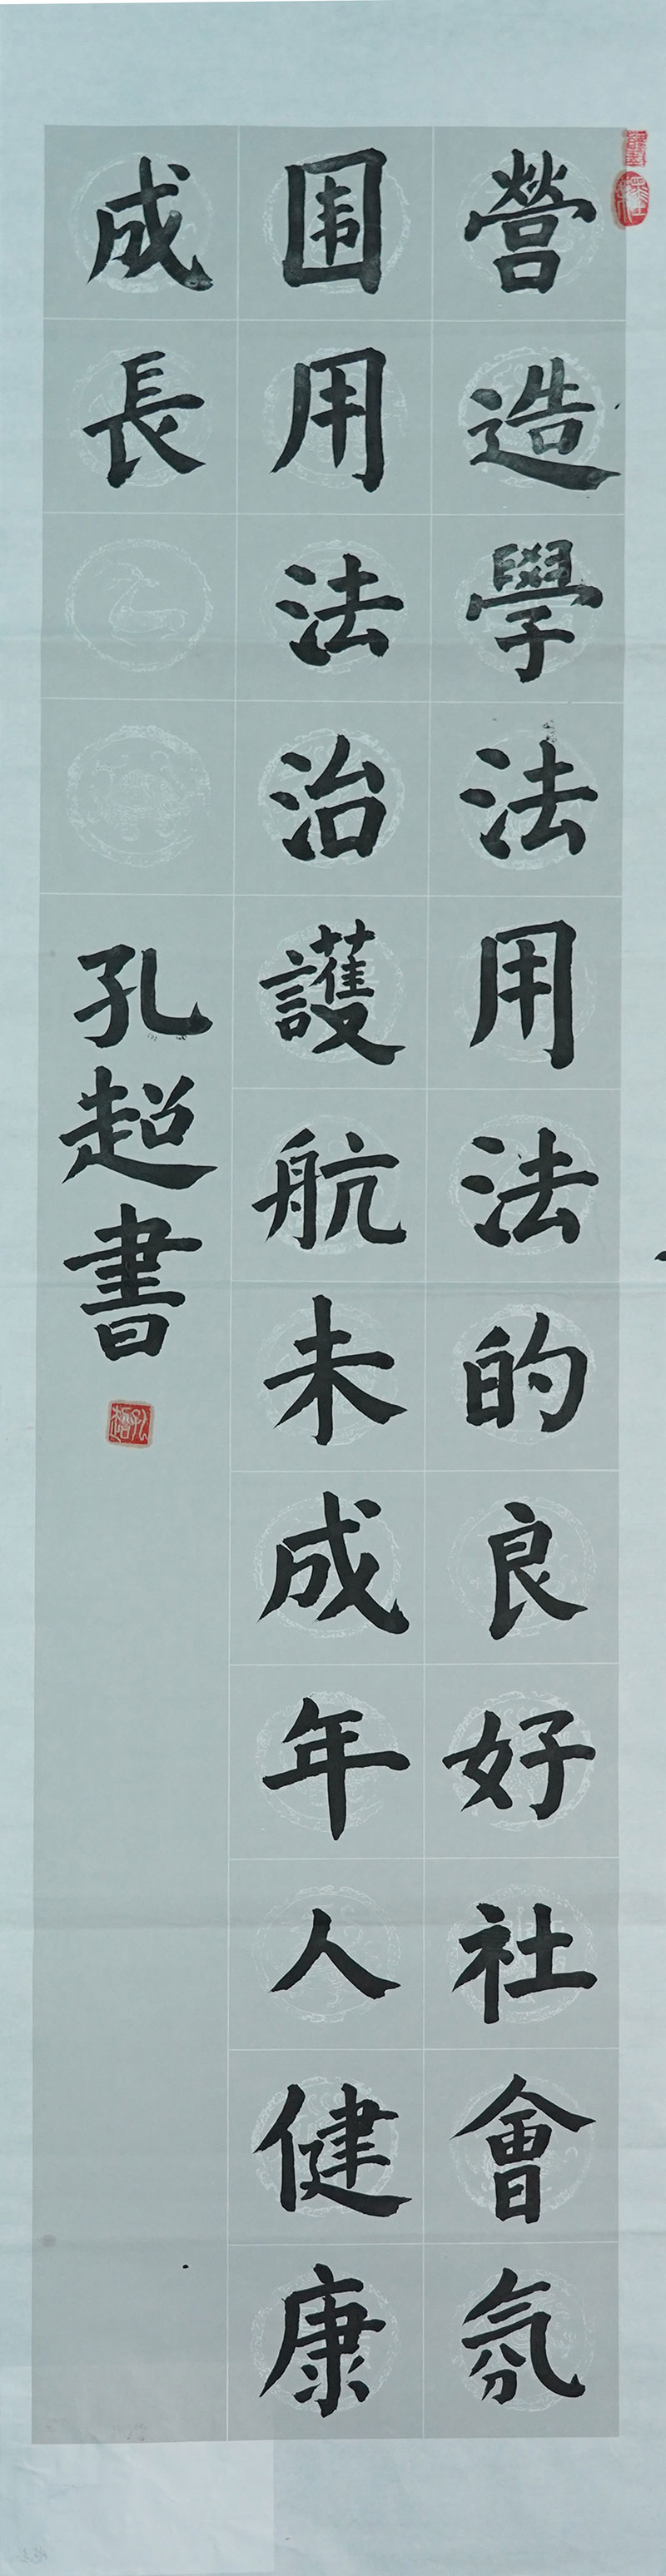 營造學法用法的良好社會氛
围用法治護航未成年人健康
成長
孔超書
孔超